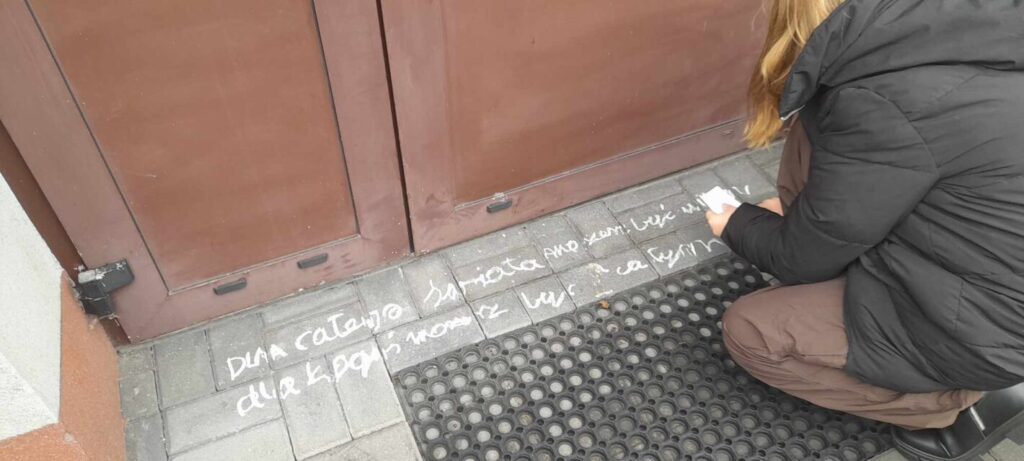 Dla całego świata możesz być
dla kogoś możesz być całym